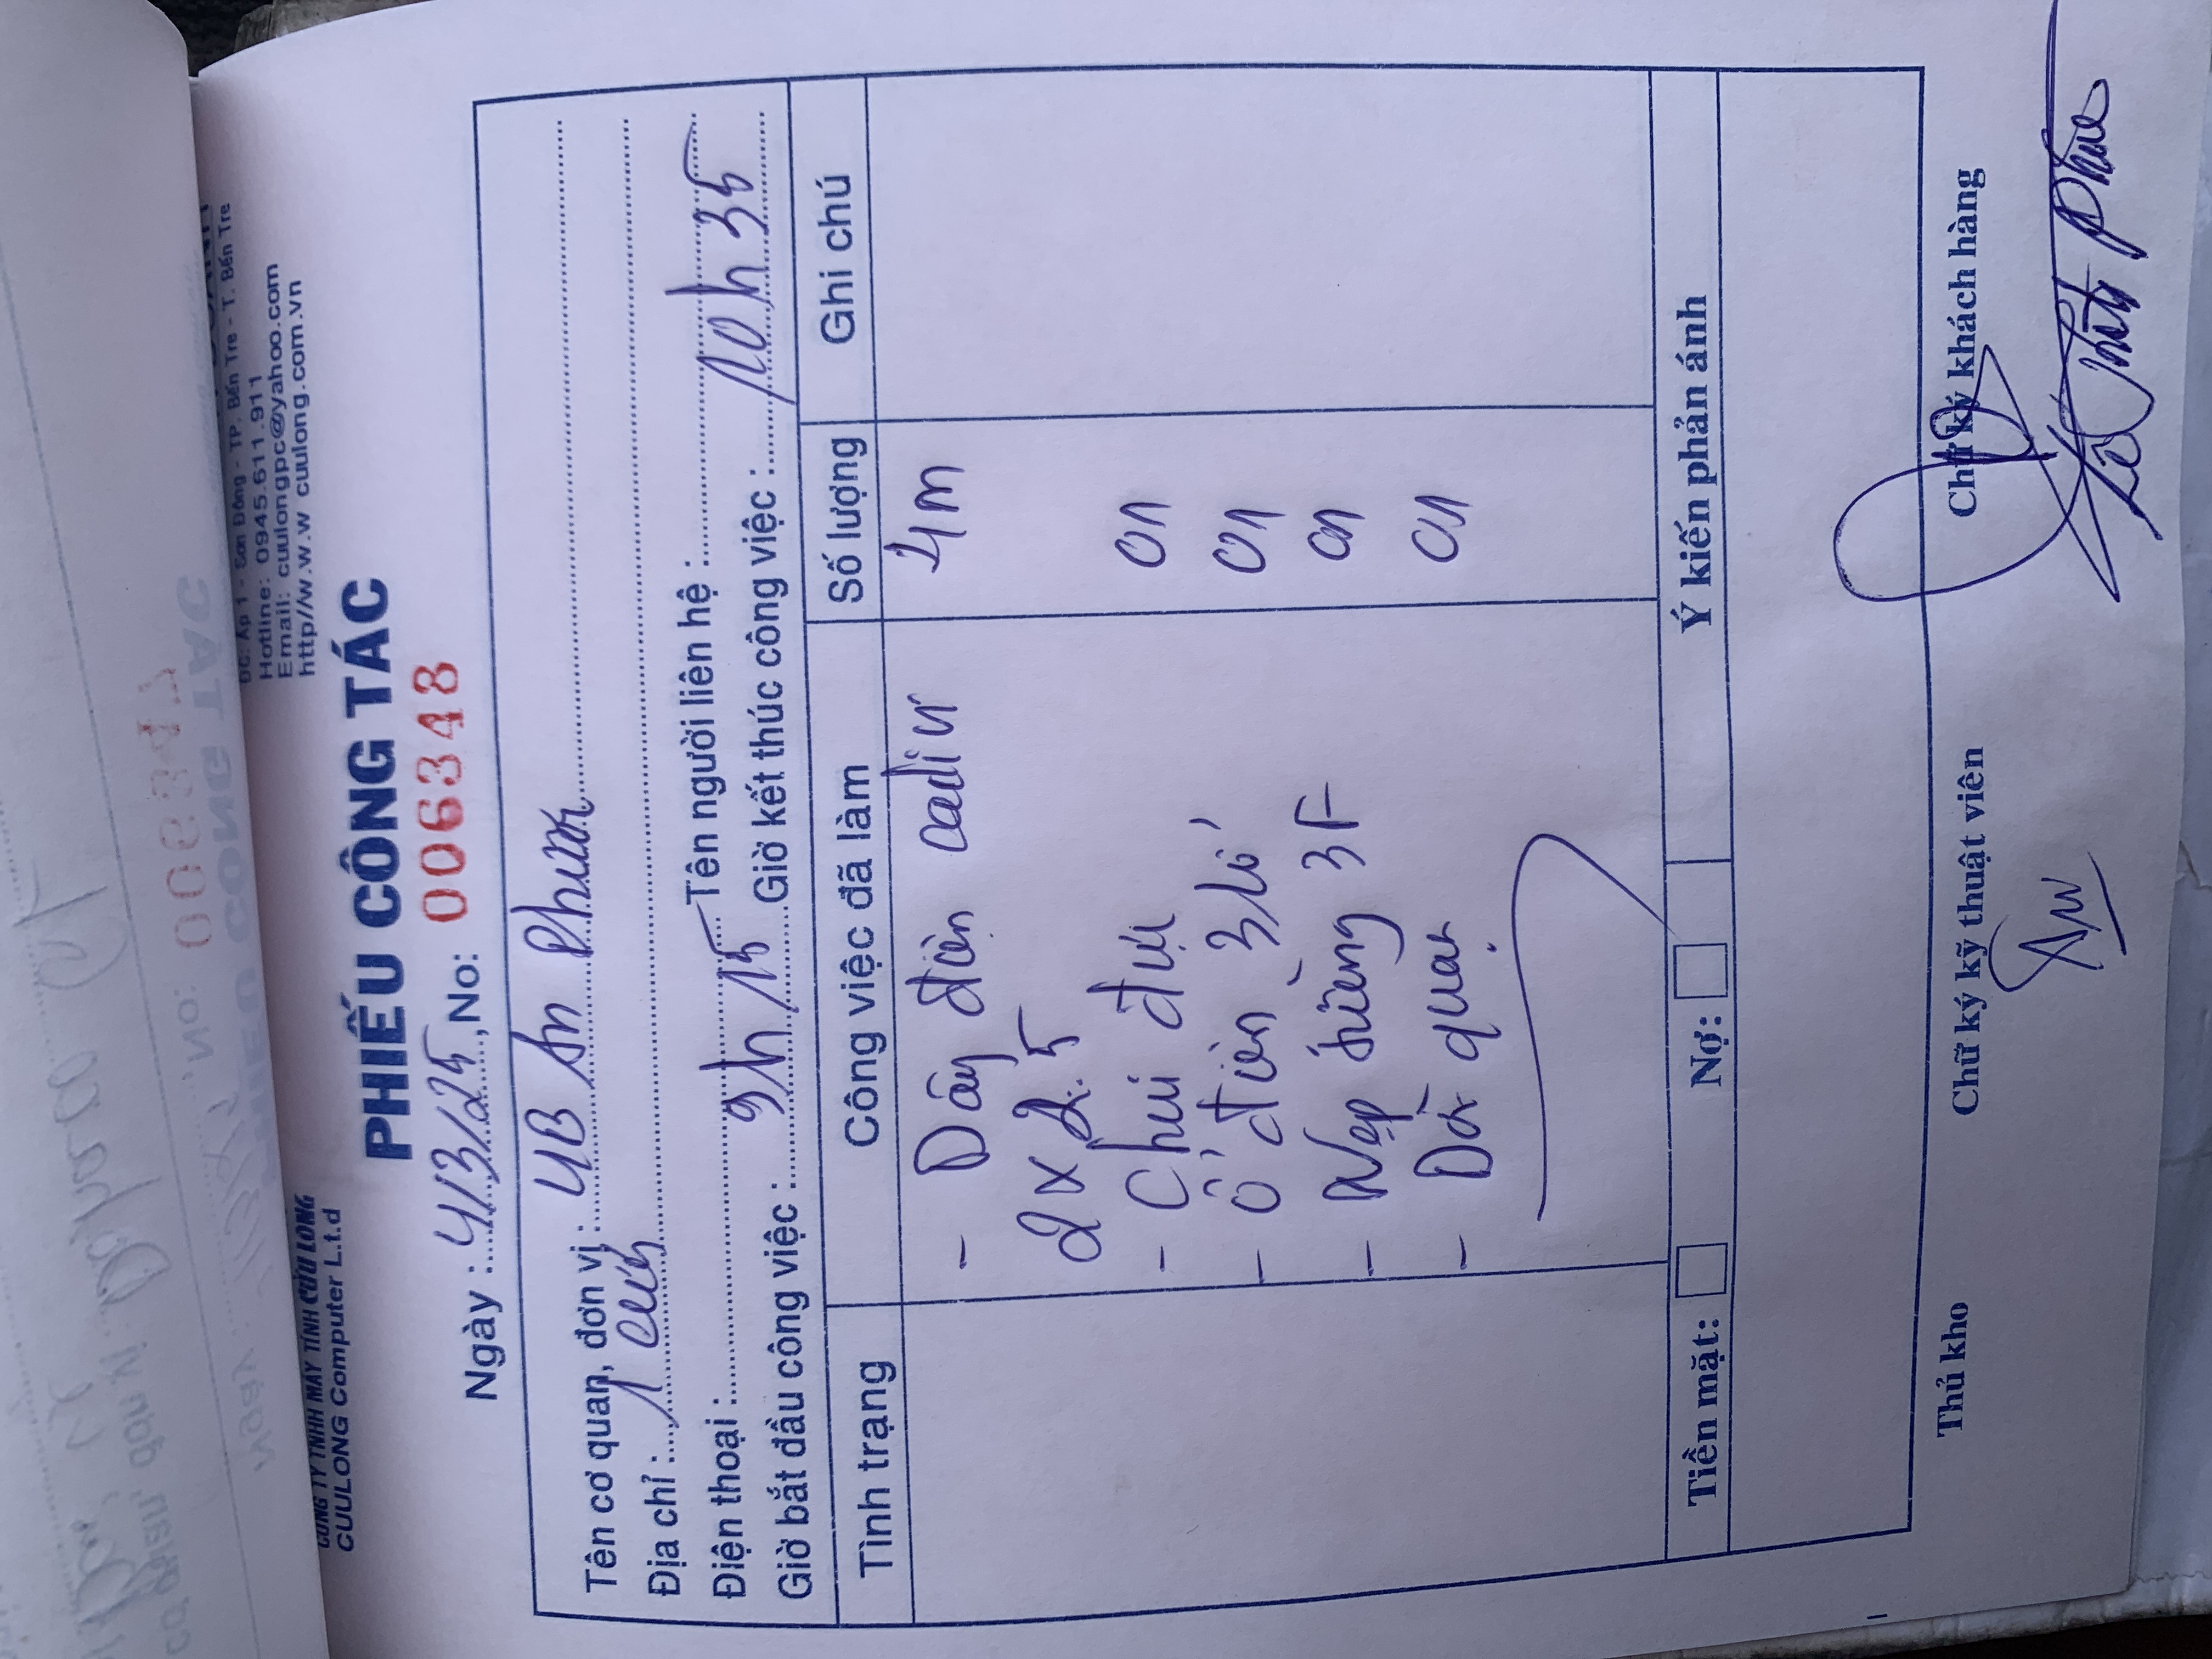 CÔNG TY TNHH MÁY TÍNH CỬU LONG
CUULONG Computer L.t.d
ĐC: Ấp 1 - Sơn Đông - TP. Bến Tre - T. Bến Tre
Hotline: 0945.611.911
Email: cuulongpc@yahoo.com
http//w.w.w cuulong.com.vn
PHIẾU CÔNG TÁC
Ngày : 4/3/25 , No: 006348
Tên cơ quan, đơn vị : UB An Phước
Địa chỉ :
Điện thoại : Tên người liên hệ :
Giờ bắt đầu công việc : 9h15 Giờ kết thúc công việc : 10h35
Tình trạng Công việc đã làm Số lượng Ghi chú
- Dây điện cadivi 4m
2 x 2.5
- Chui đực 01
- Ổ điện 3 lỗ 01
- Nẹp 3F 01
- Dò quạt 01
Tiền mặt: Nợ: Ý kiến phản ánh
Thủ kho Chữ ký kỹ thuật viên Chữ ký khách hàng
006347